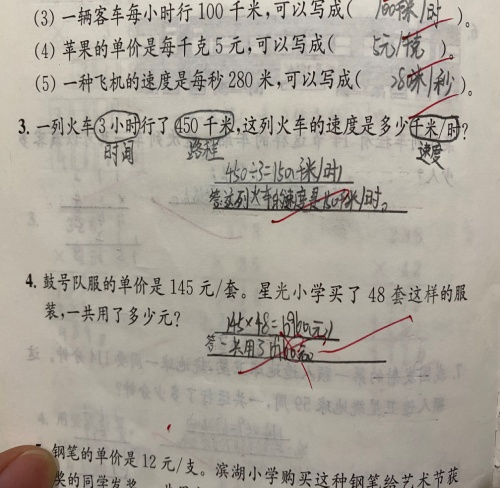 (3) 一辆客车每小时行 100 千米,可以写成( 100千米/时 )。
(4) 苹果的单价是每千克 5 元,可以写成( 5元/千克 )。
(5) 一种飞机的速度是每秒 280 米,可以写成( 280米/秒 )。
3. 一列火车3小时行了 450 千米,这列火车的速度是多少千米/时?
时间 路程 速度
450÷3=150(千米/时)
答:这列火车的速度是150千米/时。
4. 鼓号队服的单价是 145 元/套。星光小学买了 48 套这样的服
装,一共用了多少元?
145×48=6960(元)
答:一共用了6960元。
5. 钢笔的单价是 12 元/支。滨湖小学购买这种钢笔给艺术节获
奖的同学发奖